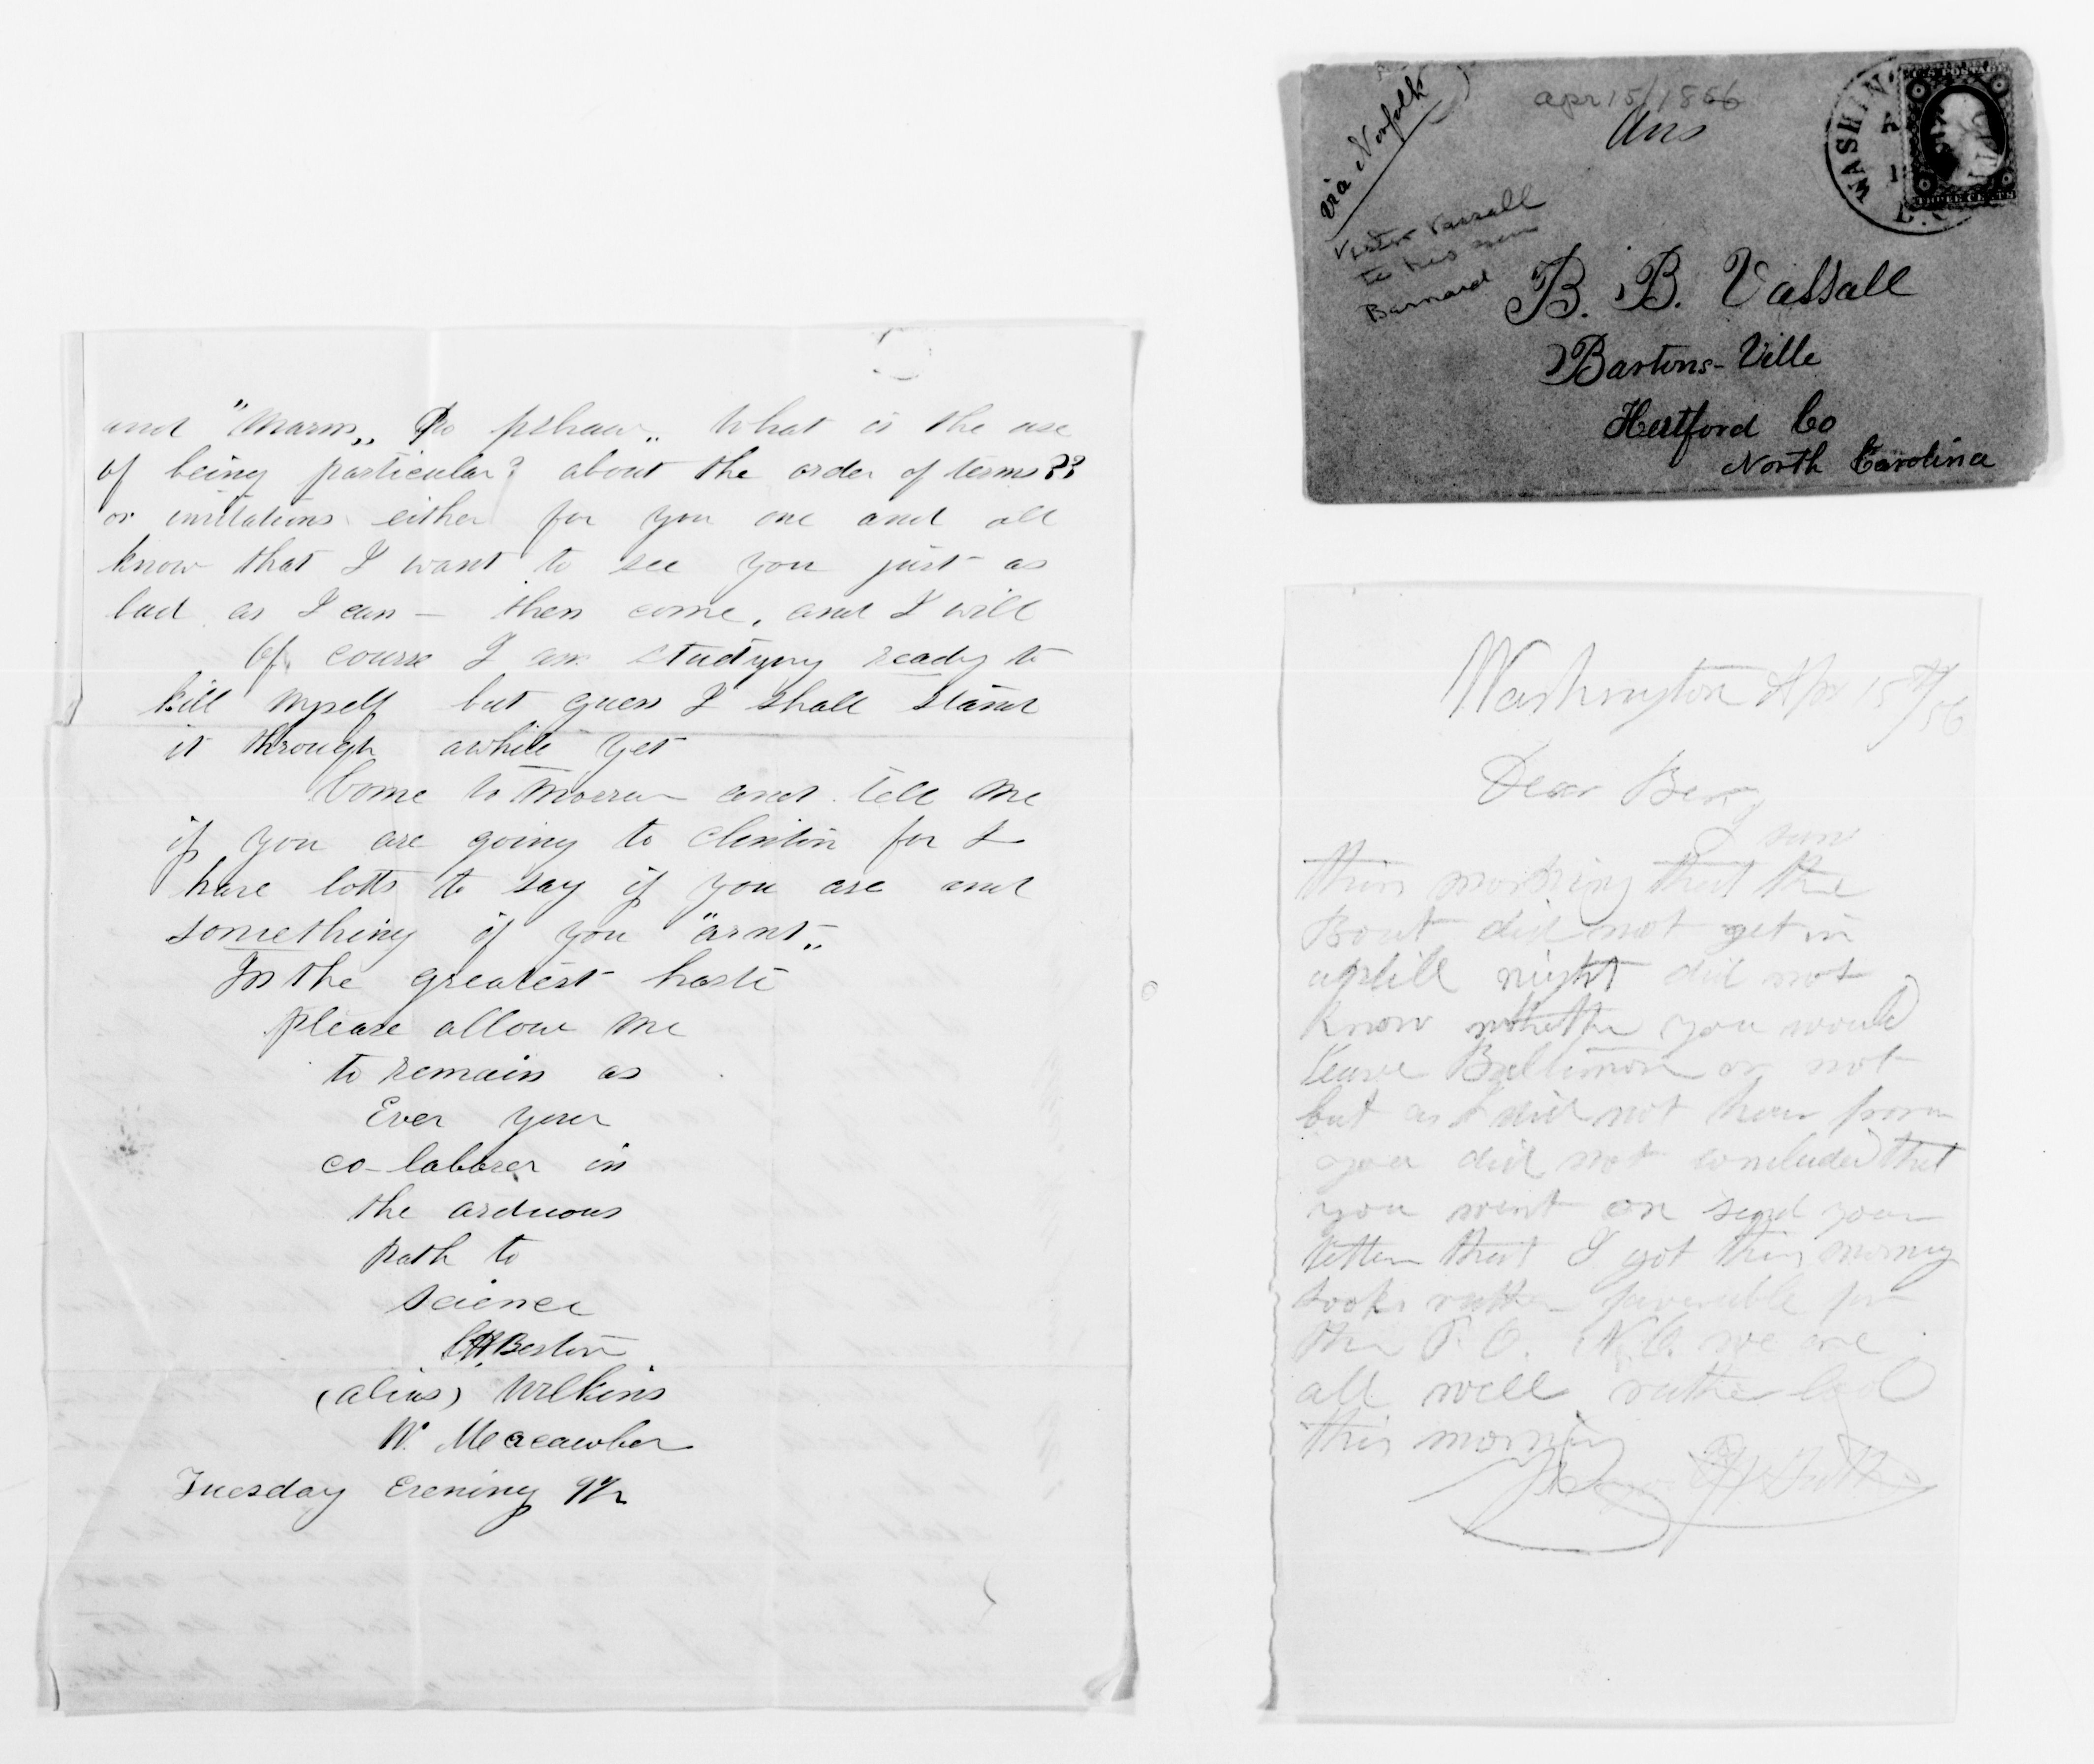 and "Marm,, Po pshaw,, What is the use
of being particular? about the order of terms??
or invitations either for you one and all
know that I want to see you just as
bad as I can — then come, and I will
Of course I am studying ready to
kill myself but guess I shall stand
it through awhile yet
Come to morrow and tell me
if you are going to Clinton for I
have lotts to say if you are and
something if you "arnt,,
In the greatest haste
please allow me
to remain as
Ever your
co-laborer in
the arduous
path to
science
(alias) Wilkins
W. Macawber
Tuesday Evening 9½
via Norfolk
apr 15/1856
Ans
WASHIN
Vassall
to his son
Barnard
B. B. Vassall
Bartons-Ville
Hertford Co
North Carolina
Washington Apr 15th/56
Dear Beny
I
this morning that the
Boat did not get in
uptill night did not
know whether you would
leave Baltimore or not
but as I did not hear from
you did not concluded that
you went on send your
letter that I got this morning
looks rather favorable for
the P. O. N.C. we are
all well rather bad
this morning